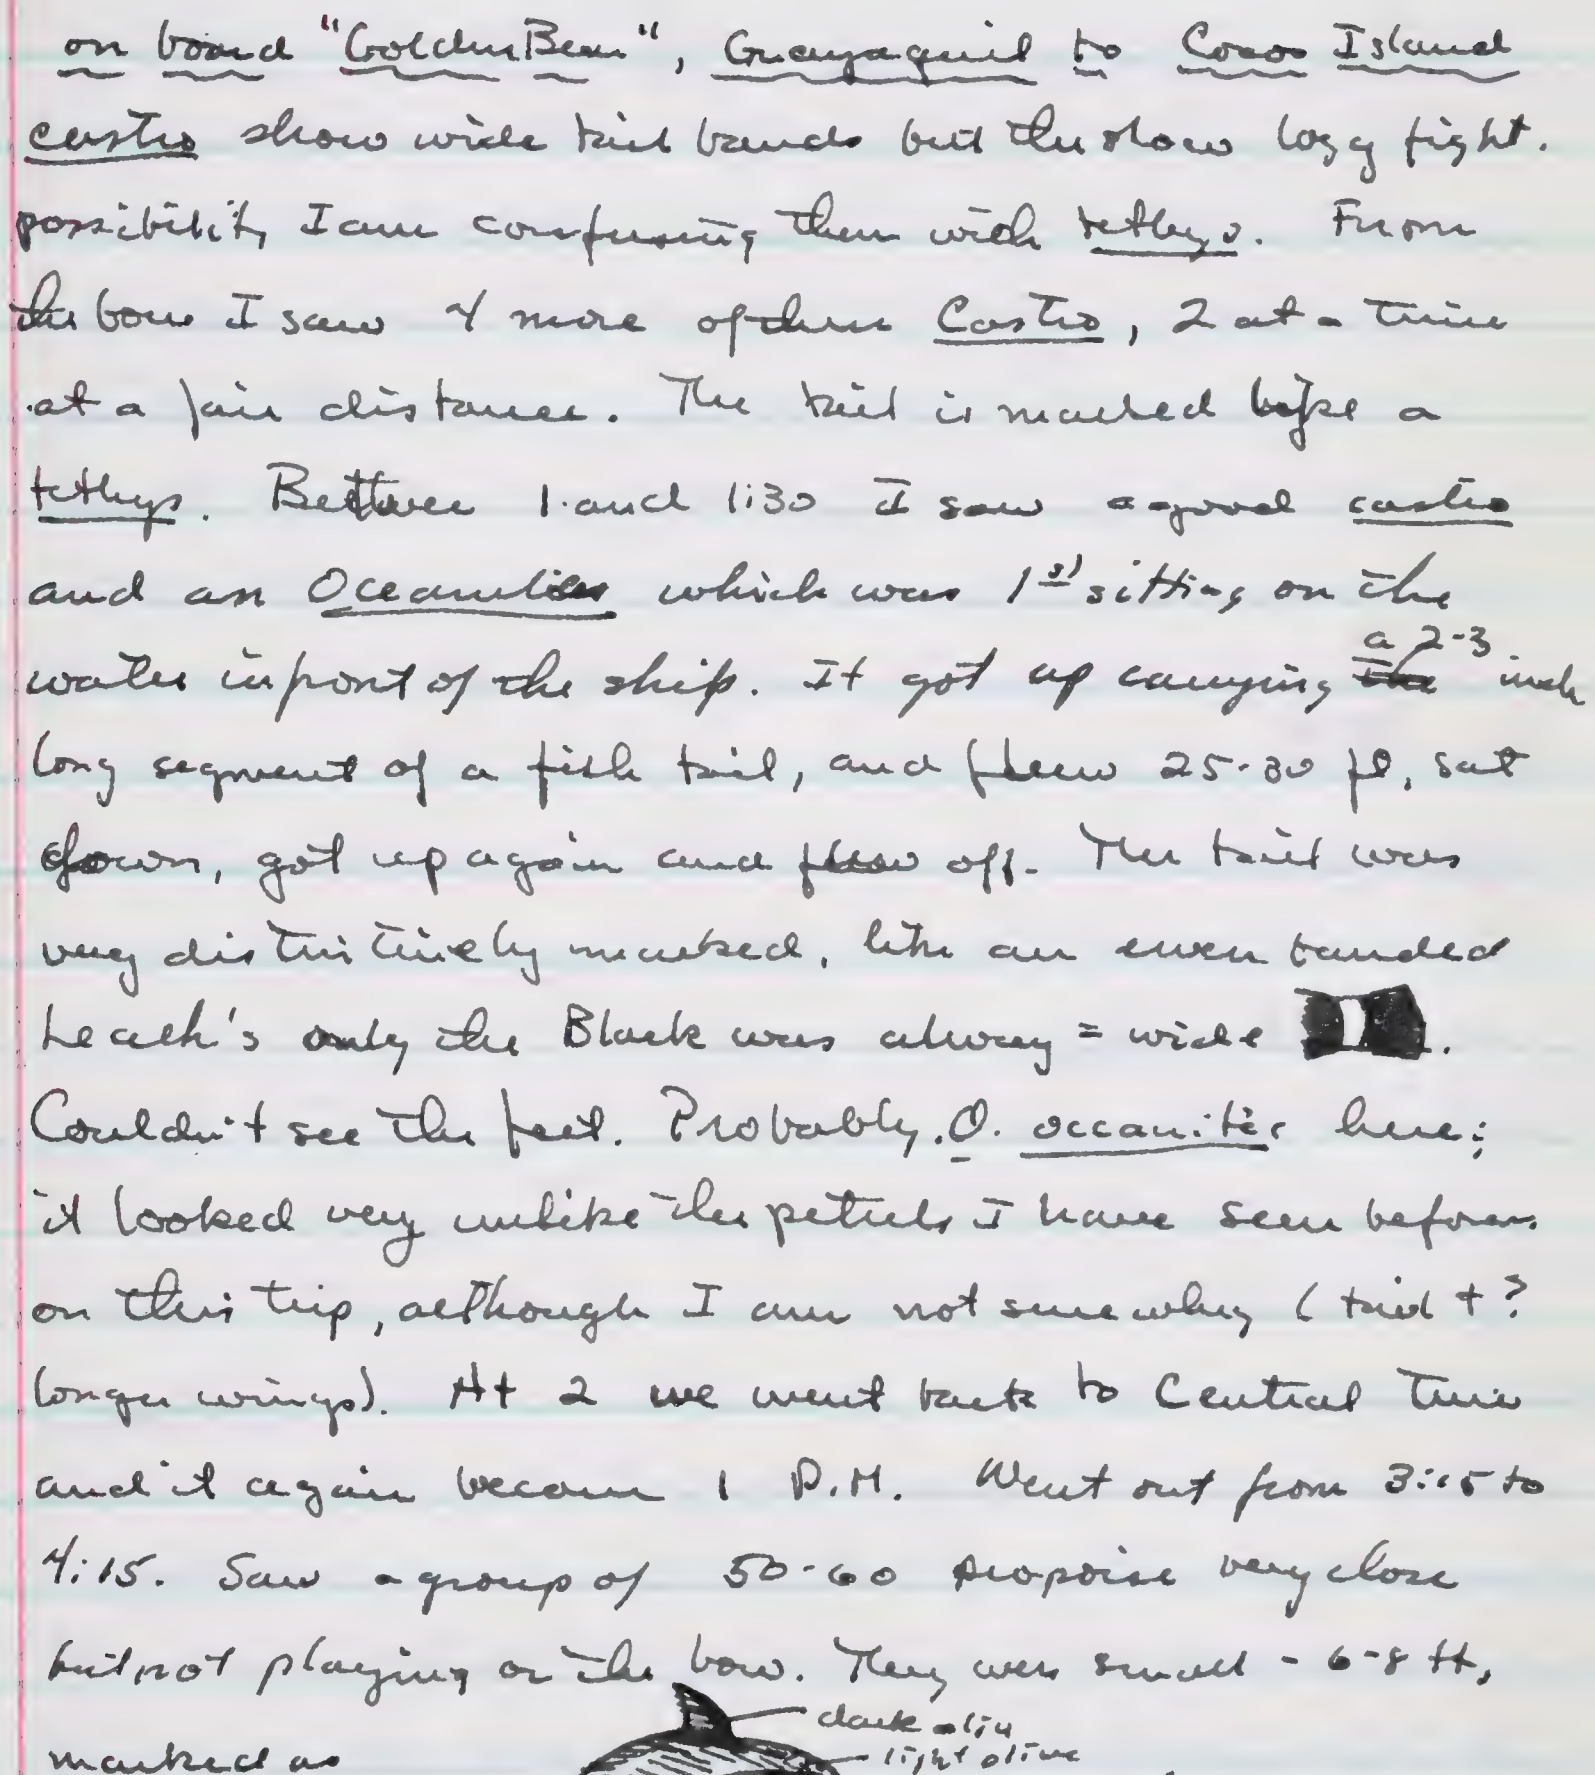 on board "Golden Bear", Guayaquil to Cocos Island
castro show wide tail bands but the slow logy fight.
possibility I am confusing them with tethys. From
the bow I saw 4 more of these Castro, 2 at a time
at a fair distance. The tail is marked like a
tethys. Between 1 and 1:30 I saw a good castro
and an Oceanites which was 1st sitting on the
water in front of the ship. It got up carrying a 2-3 inch
long segment of a fish tail, and flew 25-30 ft, sat
down, got up again and flew off. The tail was
very distinctively marked, like an even banded
Leach's only the Black was alway = wide
Couldn't see the feet. Probably O. oceanites here;
it looked very unlike the petrels I have seen before
on this trip, although I am not sure why (tail + ?
longer wings). At 2 we went back to Central Time
and it again became 1 P.M. Went out from 3:15 to
4:15. Saw a group of 50-60 porpoise very close
but not playing on the bow. They were small - 6-8 ft,
dark oliv
marked as light olive